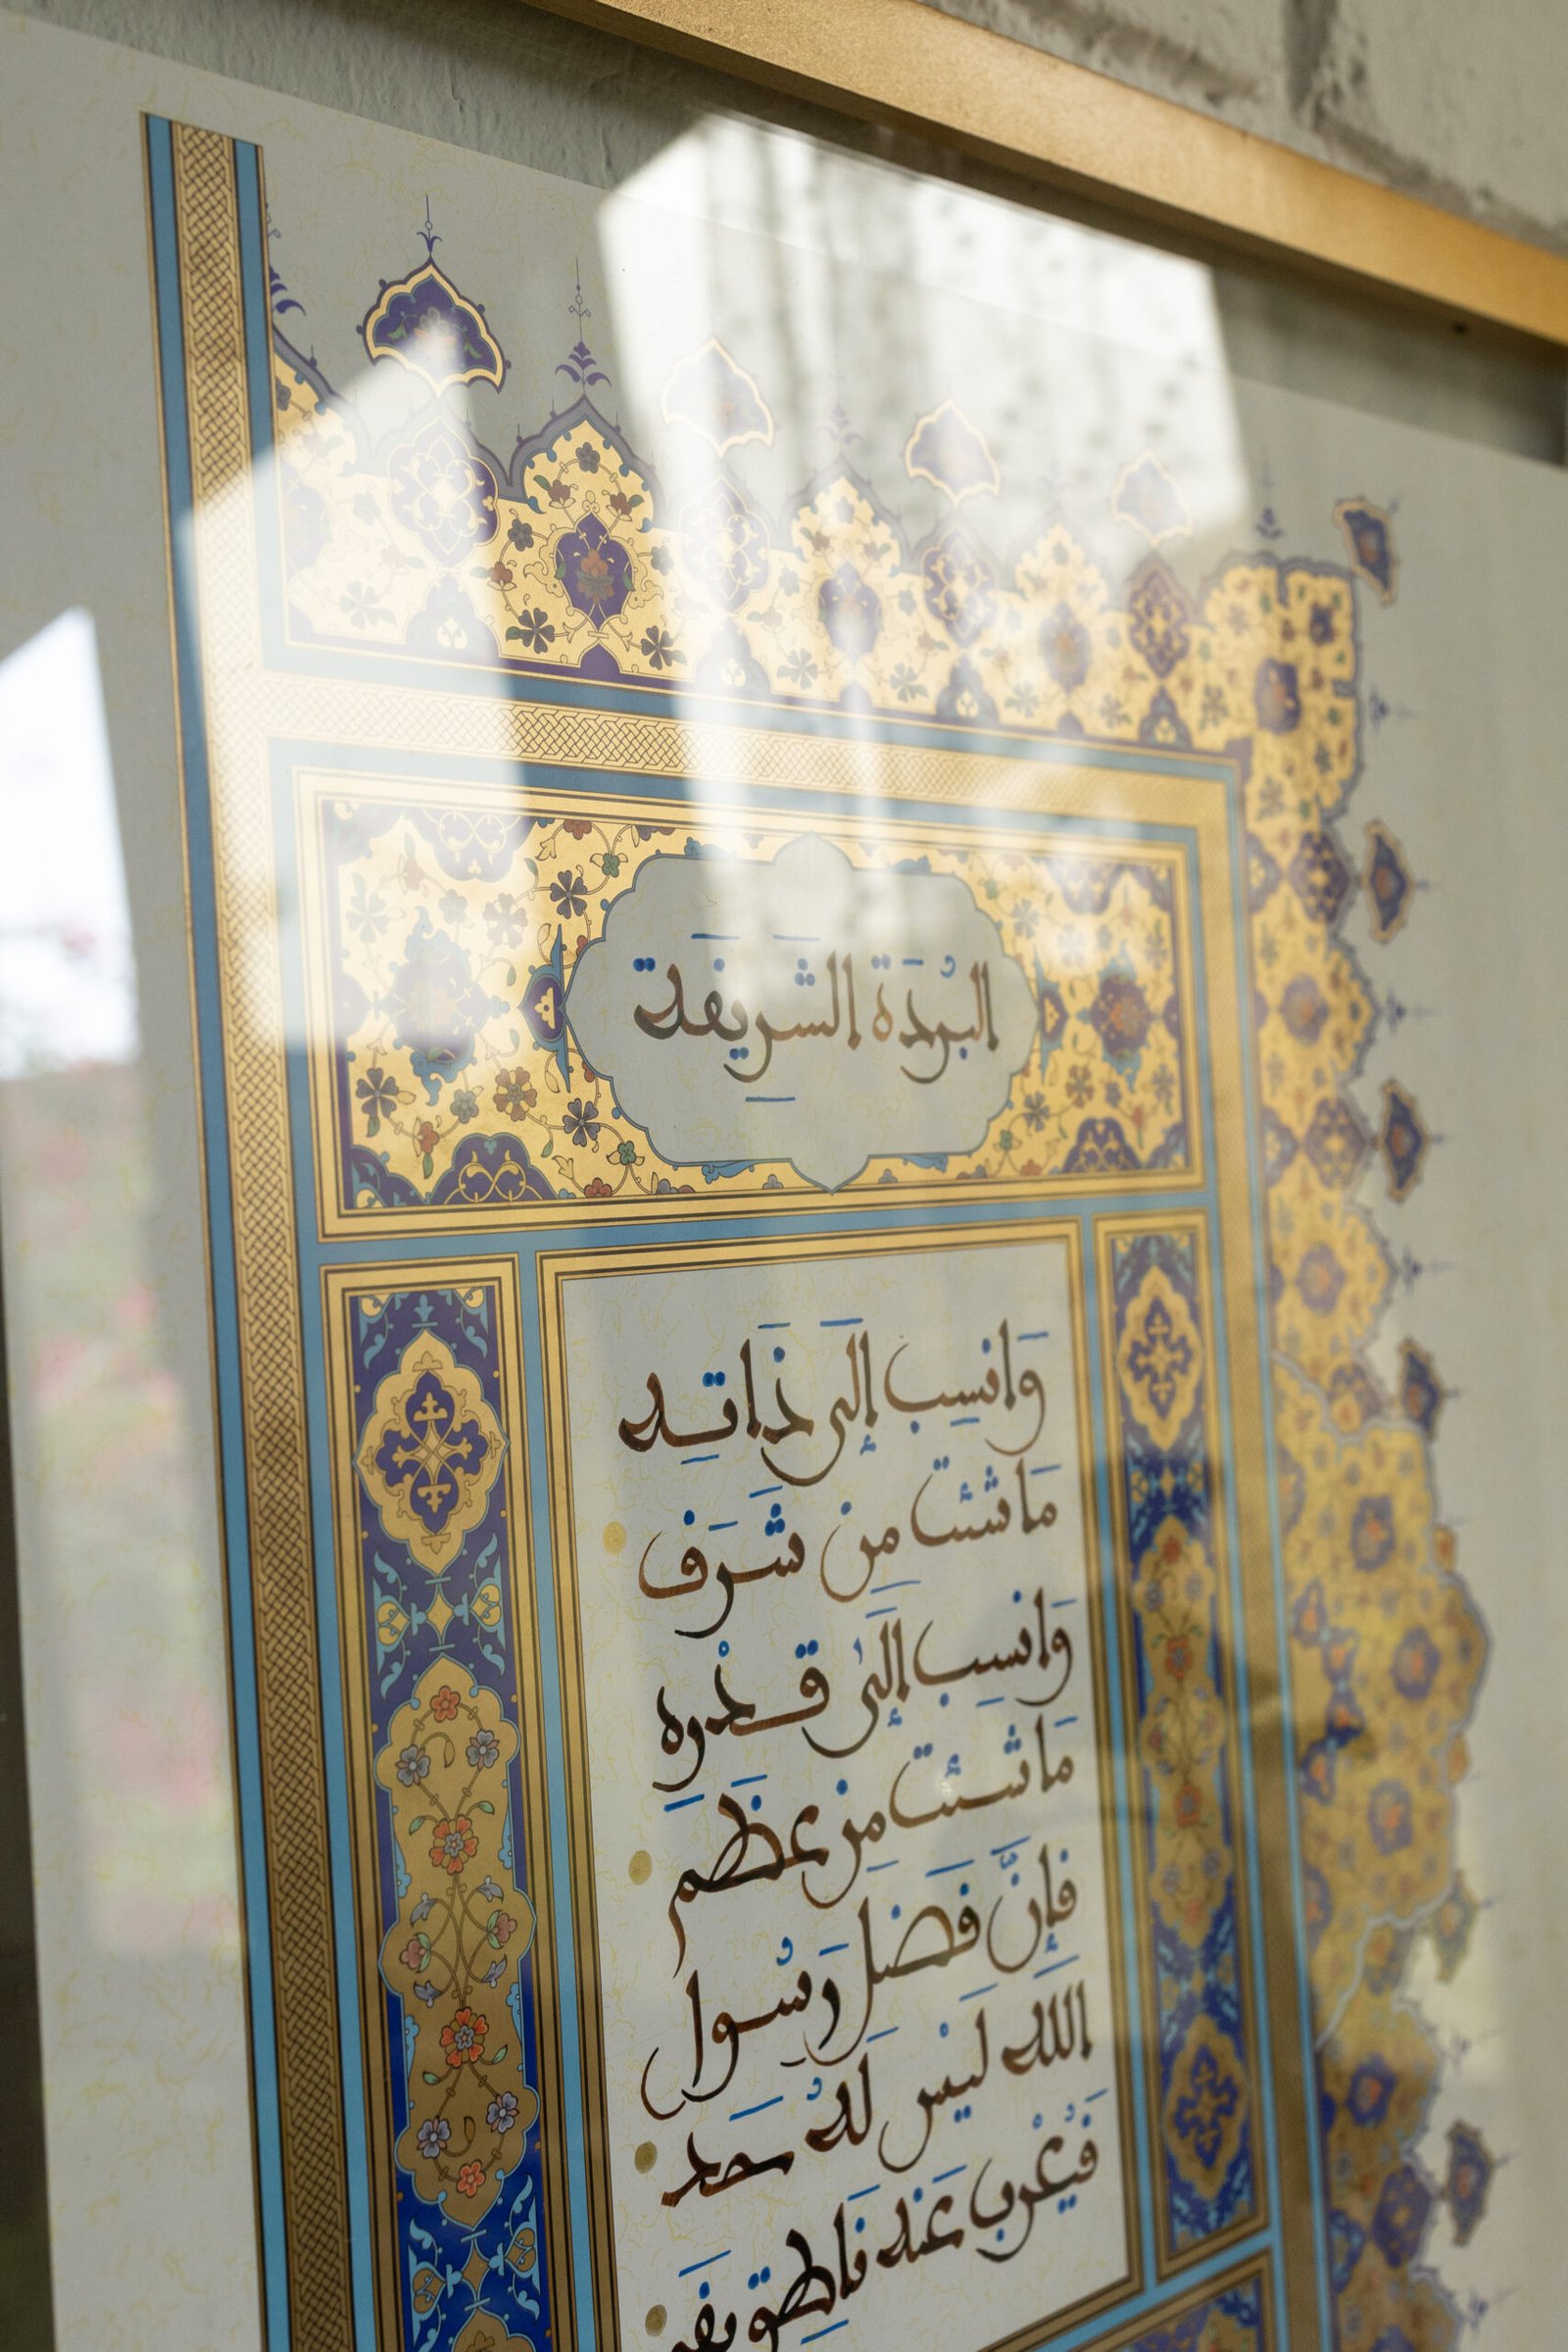 البُرْدَة الشَّرِيفَة
وَانسِب إِلَى ذَاتِه
مَا شِئتَ مِن شَرَف
وَانسِب إِلَى قَدْرِه
مَا شِئتَ مِن عِظَم
فَإِنَّ فَضْلَ رَسُول
اللَّه لَيْسَ لَهُ حَد
فَيُعْرِب عَنْهُ نَاطِق بِفَم